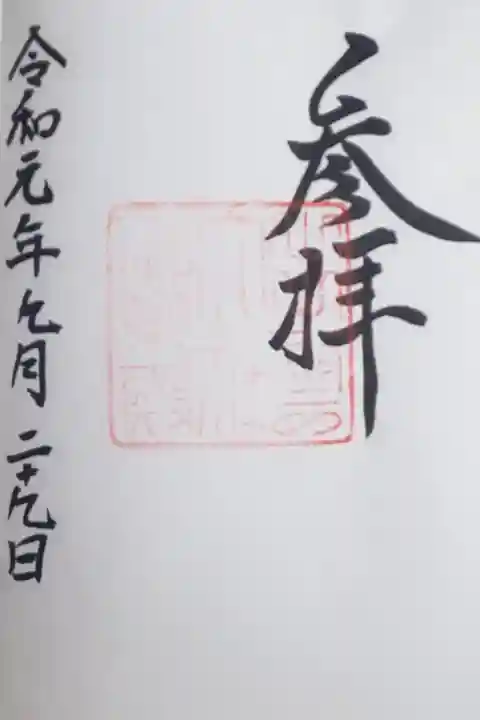 参拝
令和元年九月二十九日